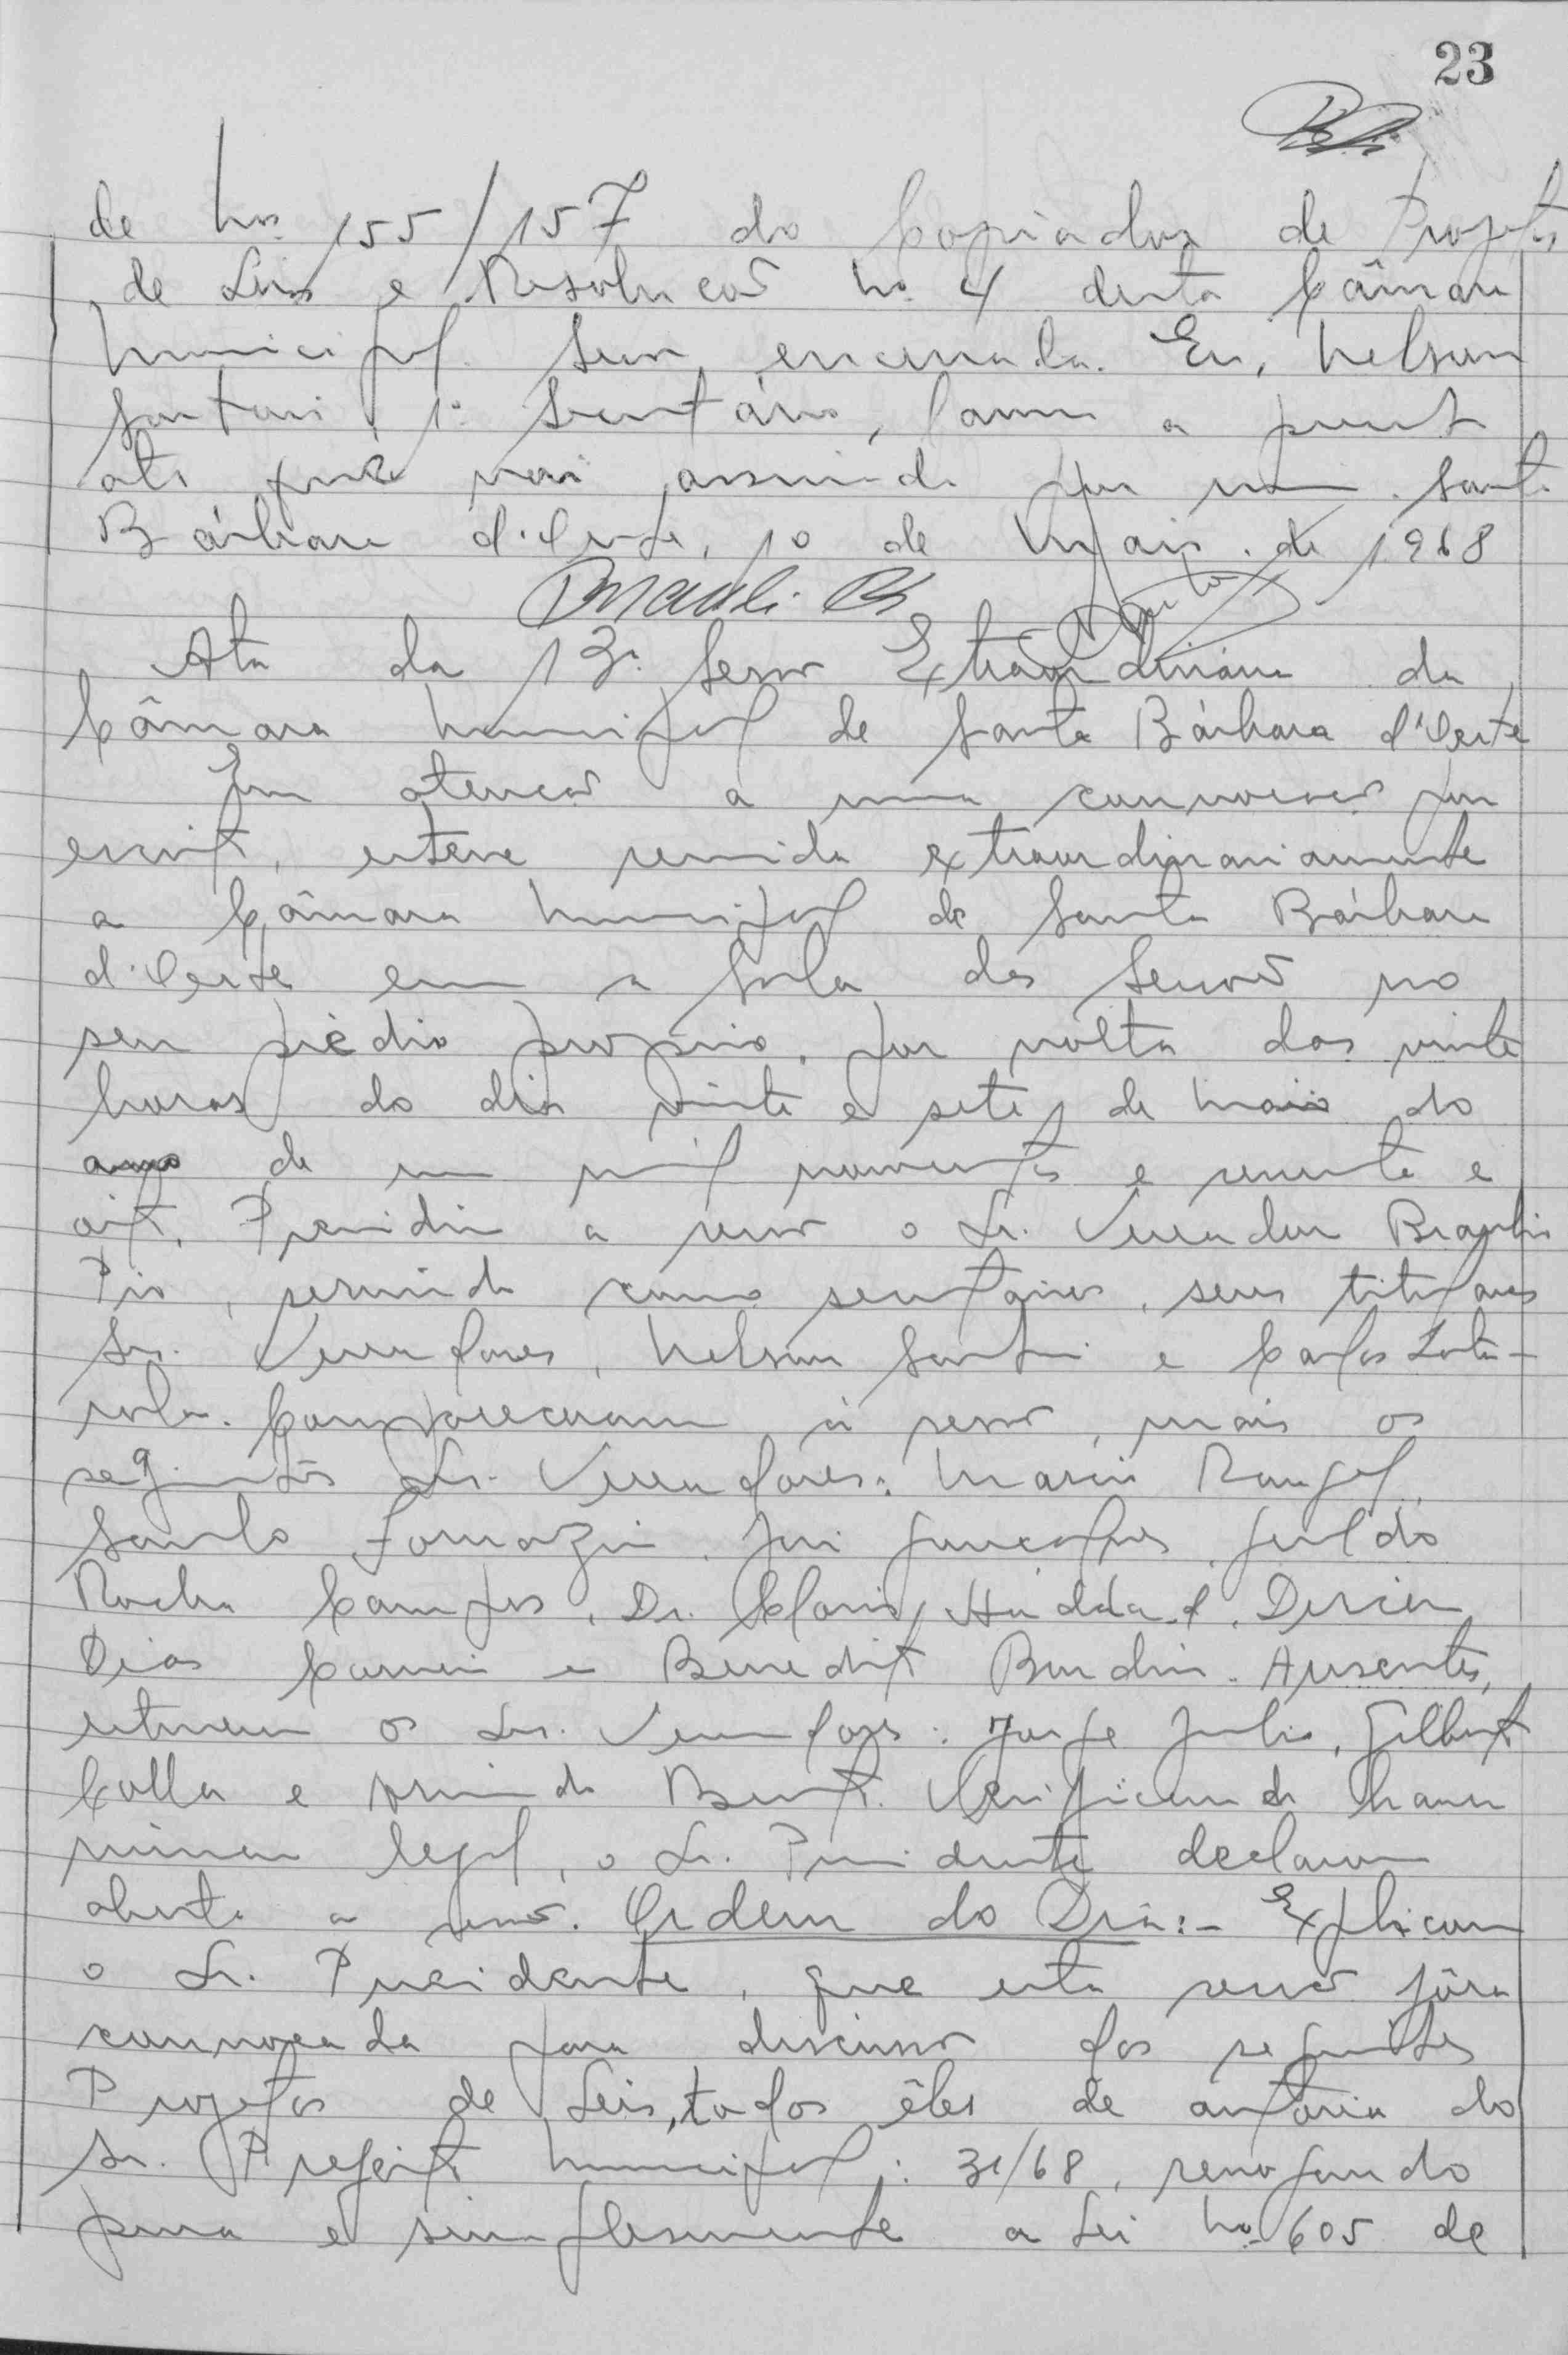 23
de nos. 155/157 do Copiador de Projetos
de Leis e Resolução no. 4 desta Câmara
Municipal. Sessão encerrada. Eu, Nelson
1º Secretário, lavrei a presente
ata que vai assinada por mim. Santa
Bárbara d'Oeste, 10 de Maio de 1968
Ata da 13ª Sessão Extraordinária da
Câmara Municipal de Santa Bárbara d'Oeste
Em atenção a uma convocação por
escrito, esteve reunida extraordinariamente
a Câmara Municipal de Santa Bárbara
d'Oeste em a Sala das Sessões no
seu prédio próprio, por volta das vinte
horas do dia vinte e sete de maio do
ano de um mil novecentos e sessenta e
oito. Presidiu a sessão o Sr. Vereador Braulio
Pio, servindo como secretários, seus titulares
Srs. Vereadores, Nelson e Carlos
Compareceram à sessão, mais os
seguintes Srs. Vereadores: Mario Rangel,
Santo Tomazin, José Gonçalves, Geraldo
Rocha Campos, Dr. Clovis Haddad, Dirceu
Dias Carneiro e Benedito Bordin. Ausentes,
estiveram os Srs. Vereadores: Jorge Julio, Gilberto
Colla e Armindo Verificando haver
número legal, o Sr. Presidente declarou
aberta a sessão. Ordem do Dia:- Explicou
o Sr. Presidente, que esta sessão fôra
convocada para discussão dos seguintes
Projetos de Leis, todos êles de autoria do
Sr. Prefeito Municipal: 31/68, revogando
pura e simplesmente a Lei no. 605 de